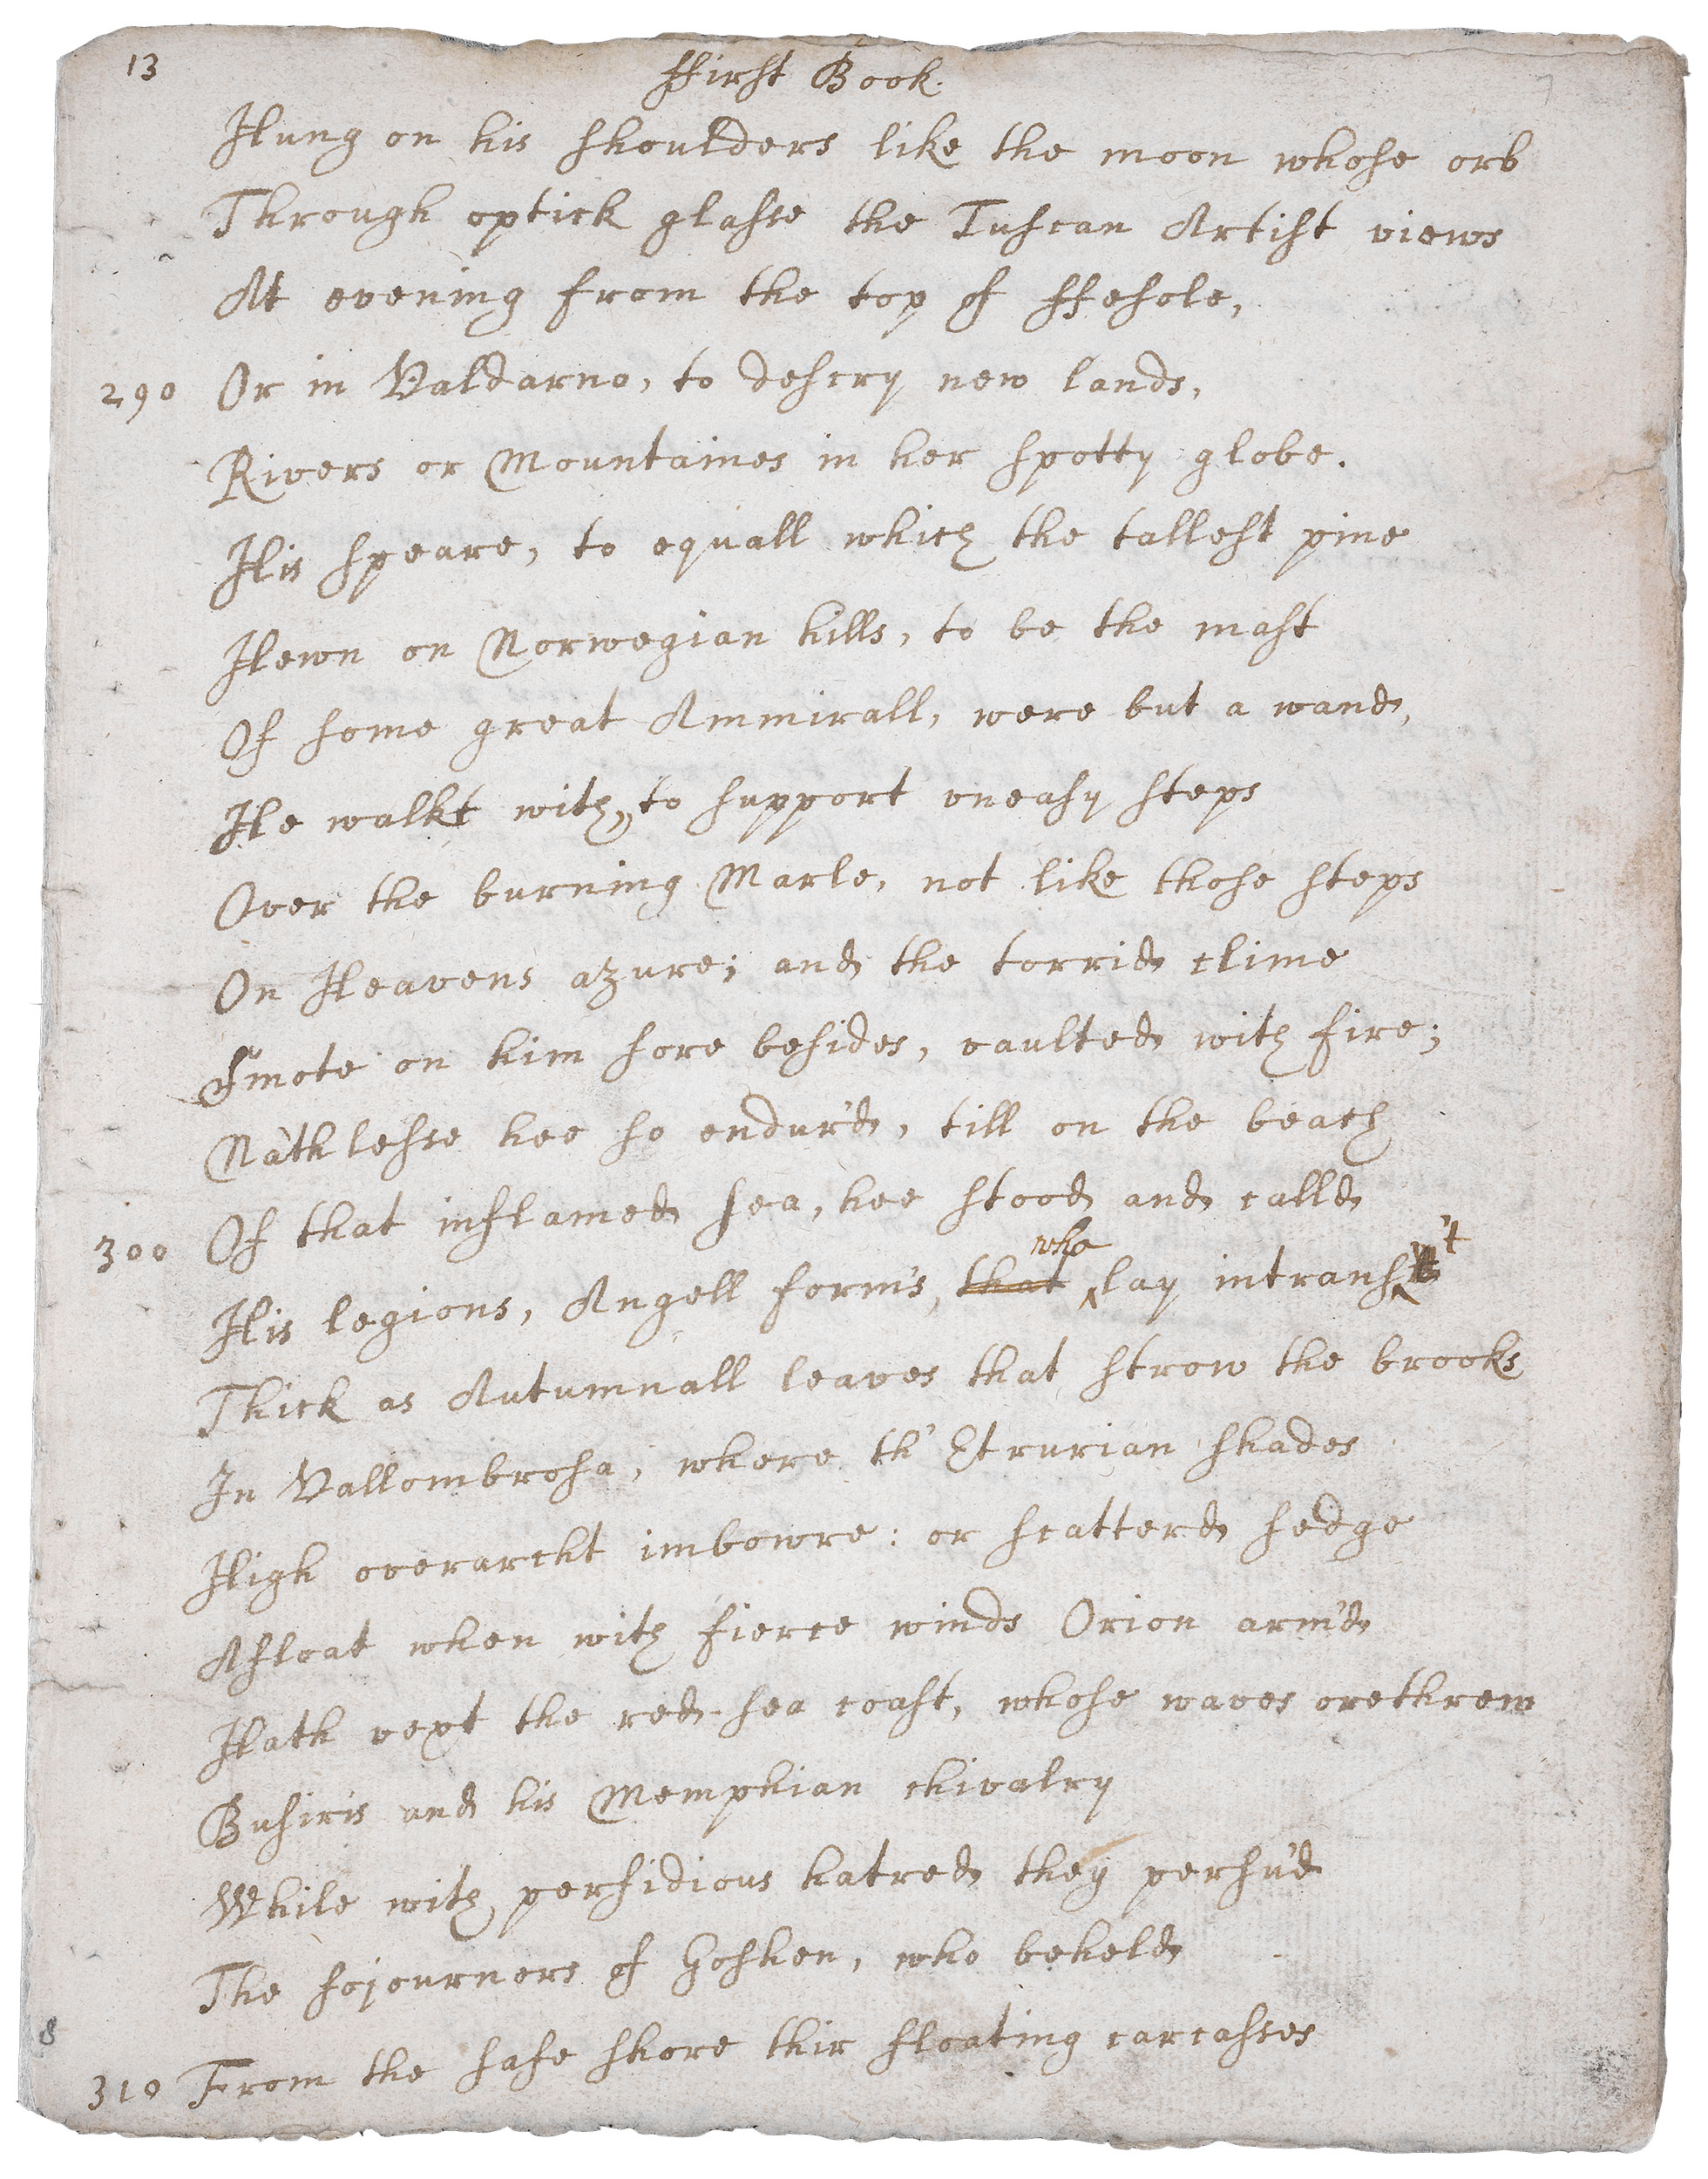 13 ffirst Book. 7
Hung on his shoulders like the moon whose orb
Through optick glasse the Tuscan Artist views
At evening from the top of ffesole,
290 Or in Valdarno, to descry new lands,
Rivers or Mountaines in her spotty globe.
His speare, to equall which the tallest pine
Hewn on Norwegian hills, to be the mast
Of some great Ammirall, were but a wand,
He walkt with, to support uneasy steps
Over the burning Marle, not like those steps
On Heavens azure; and the torrid clime
Smote on him sore besides, vaulted with fire;
Nathlesse hee so endur'd, till on the beach
300 Of that inflamed sea, hee stood and calld
His legions, Angell forms, that who lay intrans't
Thick as Autumnall leaves that strow the brooks
In Vallombrosa, where th' Etrurian shades
High overarcht imbowre: or scatterd sedge
Afloat when with fierce winds Orion arm'd
Hath vext the red-sea coast, whose waves orethrew
Busiris and his Memphian chivalry
While with perfidious hatred they persu'd
The sojourners of Goshen, who beheld
8
310 From the safe shore thir floating carcasses